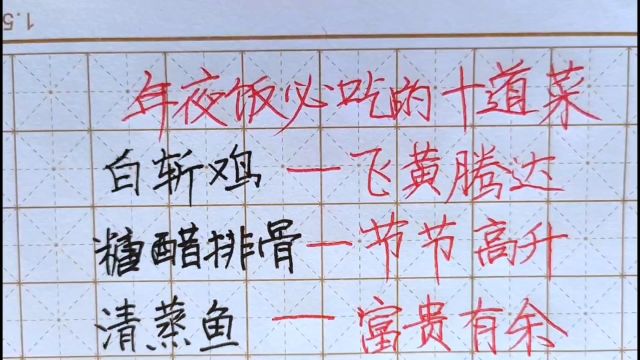 1.5
年夜饭必吃的十道菜
白斩鸡 — 飞黄腾达
糖醋排骨 — 节节高升
清蒸鱼 — 富贵有余